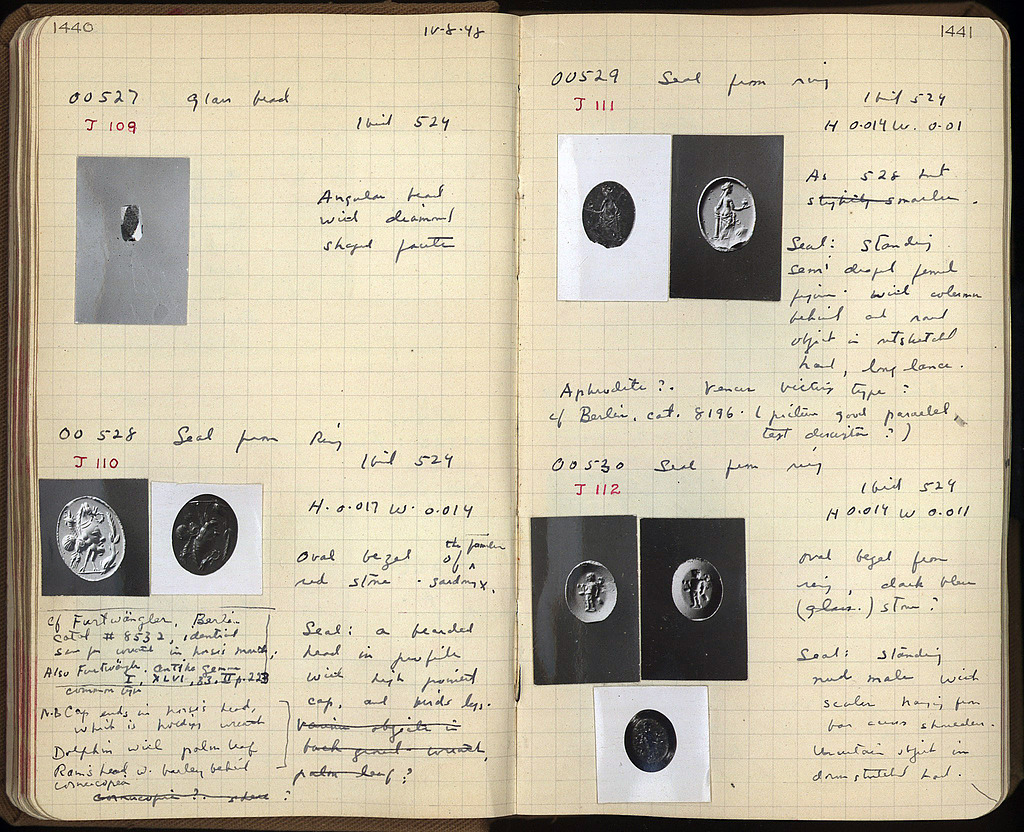 1440
IV-8-48
00527 Glass bead
J 109
Ibid 524
Angular bead
with diamond
shaped facets
00 528 Seal from Ring
J 110
Ibid 524
H. 0.017 W. 0.014
Oval bezel of
red stone. sardonyx.
cf Furtwängler, Berlin
Catal # 8532, identical
save for wreath in horse's mouth;
Also Furtwängl. Antike Gemme
I, XLVI, 33, II p. 223
common type
N.B Cap ends in horse's head,
which is holding wreath
Dolphin with palm leaf
Ram's head w. barley behind
cornucopea
cornucopia ?
Seal: a bearded
head in profile
with high pointed
cap, and birds legs.
various objects in
back ground wreath,
palm leaf?
1441
00529 Seal from ring
J 111
Ibid 524
H 0.014 W. 0.01
As 528 but
slightly smaller.
Seal: standing
semi draped female
figure with column
behind and round
object in outstretched
hand, long lance.
Aphrodite?. Venus victrix type?
cf Berlin, cat. 8196. (picture good parallel,
text description?)
00530 Seal from ring
J 112
Ibid 524
H 0.014 W 0.011
Oval bezel from
ring, dark blue
(glass.) stone?
Seal: standing
nude male with
hanging from
shoulder.
Uncertain object in
outstretched hand.